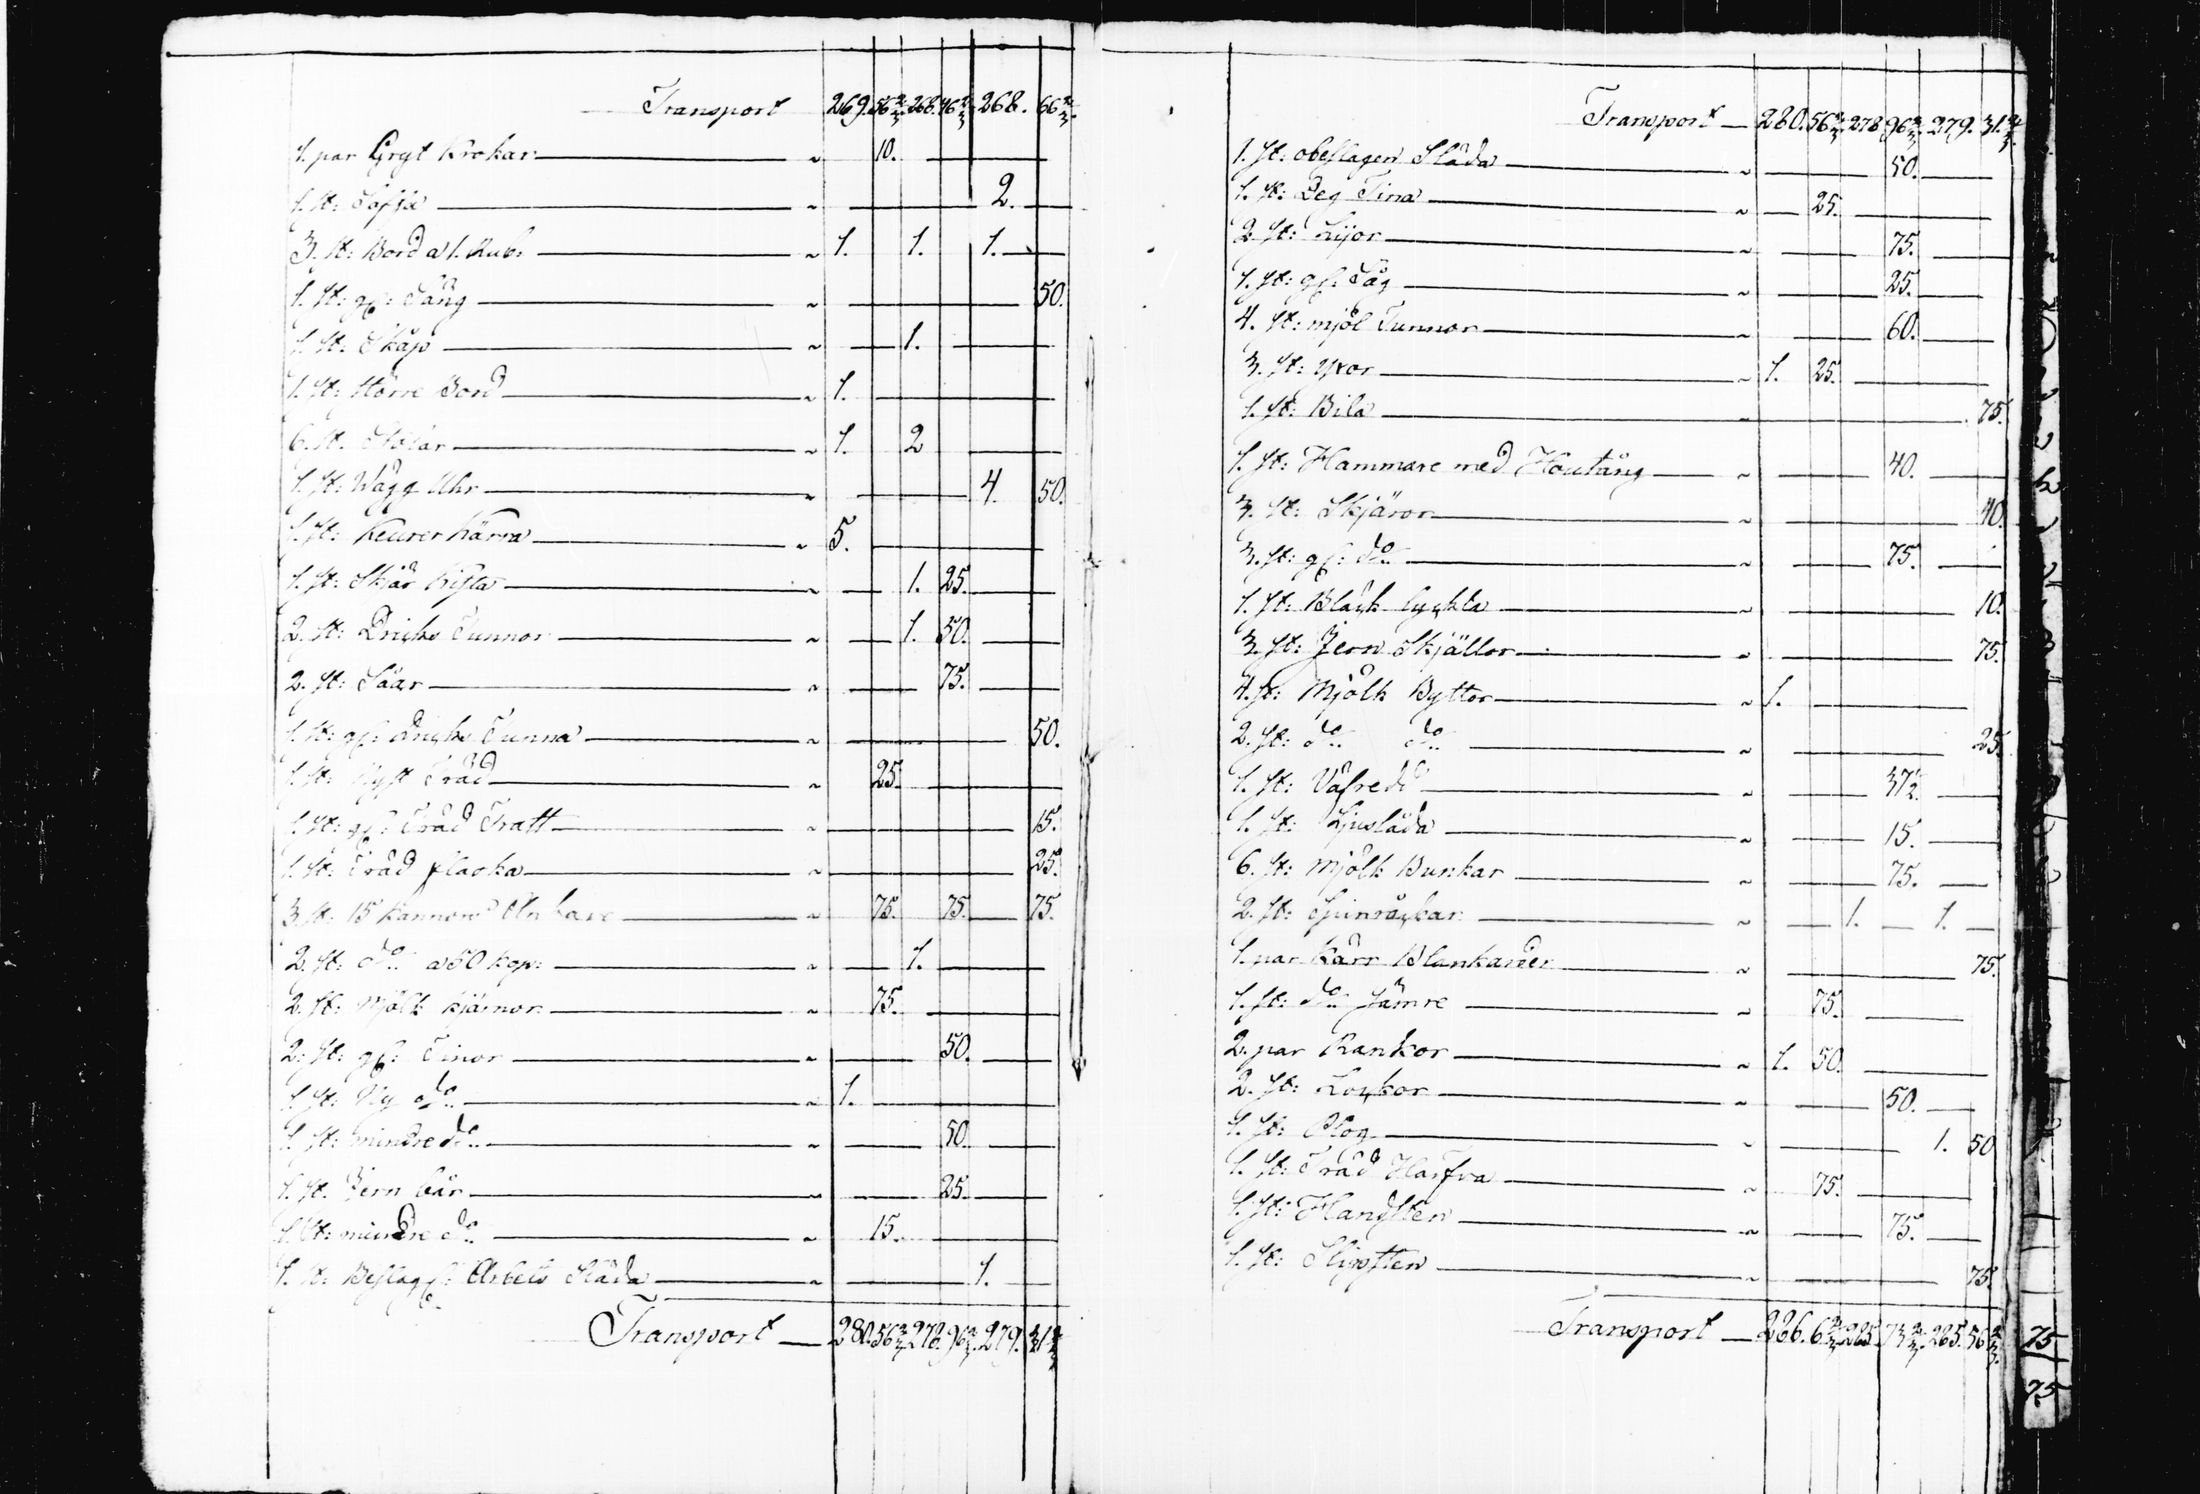 Transport 269. 56 2/3. 268. 46 2/3. 268. 66 2/3.
1. par Gryt Krokar " 10.
1. st: Soffa " 2.
3. st: Bord a 1. Rub: " 1. 1. 1.
1. st: gl: Säng " 50.
1. st. Skåp " 1.
1. st: större Bord " 1.
6. st. Stolar " 1. 2
1. st: Wägg Uhr " 4. 50.
1. st: Keurer kärra " 5.
1. st: Skjär kista " 1. 25.
2. st: Dricks Tunnor " 1. 50.
2. st: Såar " 75.
1. st: gl: dricks Tunna " 50.
1. st: Nytt Tråd " 25.
1. st: gl: Träd Tratt " 15.
1. st: Träd flaska " 25.
3. st: 15 kannors Ankare " 75. 75. 75.
2. st: do a 50 kop: " 1.
2. st: Mjölk kjärnor " 75.
2. st: gl: Tinor " 50.
1. st: Ny do " 1.
1. st: mindre do " 50.
1. st. Jern bår " 25.
1. st: mindre do " 15.
1. st: Beslag gl: Arbets Släda " 1.
Transport 280. 56 2/3. 278. 96 2/3. 279. 31 2/3
Transport 280. 56 2/3. 278. 96 2/3. 279. 31 2/3.
1. st: obeslagen Släda " 50.
1. st: Deg Tina " 25.
2. st: Lijor " 75.
1. st: gl: Såg " 25.
4. st: mjöl Tunnor " 60.
3. st: Yxor " 1. 25.
1. st: Bila " 75.
1. st: Hammare med Hovtång " 40.
3. st: Skjäror " 40.
3. st: gl: do " 75.
1. st: Bläck lyckta " 10.
3. st: Jern Skjällor " 75.
4. st: Mjölk Byttor " 1.
2. st: do do " 25.
1. st: Väfsred " 37 1/2.
1. st: Ljuslåda " 15.
6. st: Mjölk Bunkar " 75.
2. st: Spinråckar " 1. 1.
1. par Kärr Blankarder " 75.
1. st: do sämre " 75.
2. par Rankor " 1. 50.
2. st: Lockor " 50.
1. st: Plog " 1. 50
1. st: Träd Harfva " 75.
1. st: Handsten " 75.
1. st: Slipsten " 75.
Transport 286. 6 2/3. 285. 73 2/3. 285. 56 2/3.
75
75